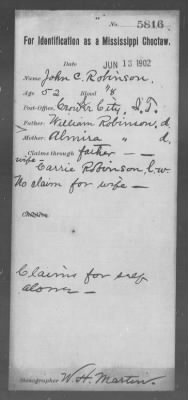 No. 5816
For Identification as a Mississippi Choctaw.
Date JUN 13 1902
Name John C. Robinson.
Age 52 Blood 1/8
Post-Office, Crocker City, I.T.
Father: William Robinson, d.
Mother: Almira " d.
Claims through father —
wife— Carrie Robinson l.w.
No claim for wife —
Claims for self
alone —
Stenographer W. H. Martin.